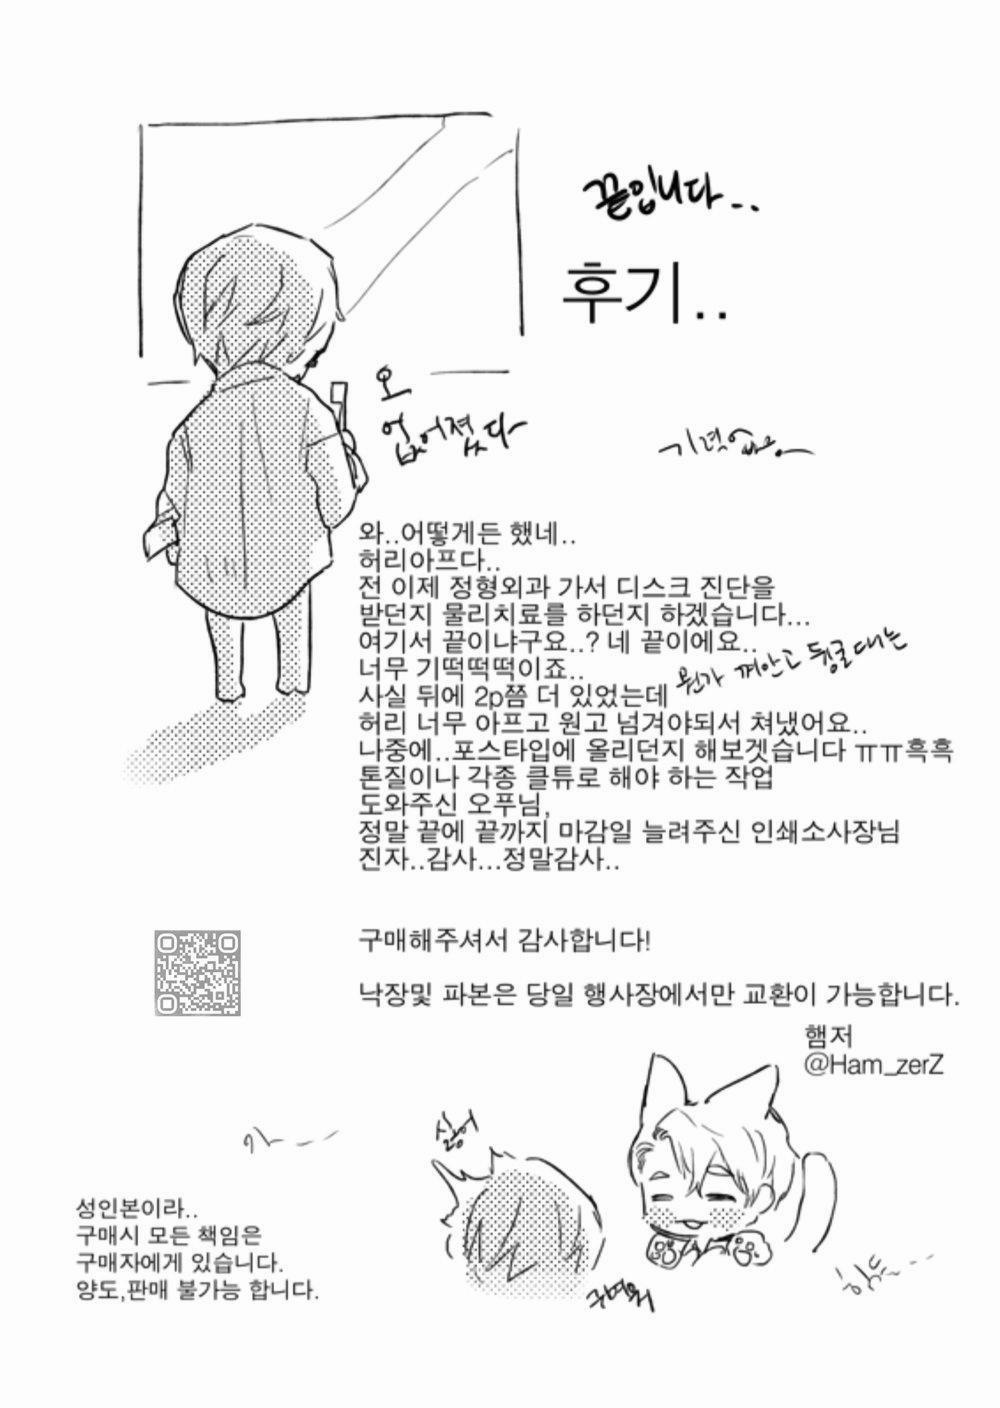 끝입니다...
후기..
오
없어졌다
기력없음
와..어떻게든 했네..
허리아프다..
전 이제 정형외과 가서 디스크 진단을
받던지 물리치료를 하던지 하겠습니다...
여기서 끝이냐구요..? 네 끝이에요..
너무 기떡떡떡이죠..
사실 뒤에 2p쯤 더 있었는데 뭔가 껴안고 뒹굴대는
허리 너무 아프고 원고 넘겨야되서 쳐냈어요..
나중에..포스타입에 올리던지 해보겟습니다 ㅠㅠ흑흑
톤질이나 각종 클튜로 해야 하는 작업
도와주신 오푸님,
정말 끝에 끝까지 마감일 늘려주신 인쇄소사장님
진자..감사...정말감사..
구매해주셔서 감사합니다!
낙장및 파본은 당일 행사장에서만 교환이 가능합니다.
햄저
@Ham_zerZ
싫어
성인본이라..
구매시 모든 책임은
구매자에게 있습니다.
양도,판매 불가능 합니다.
귀여워